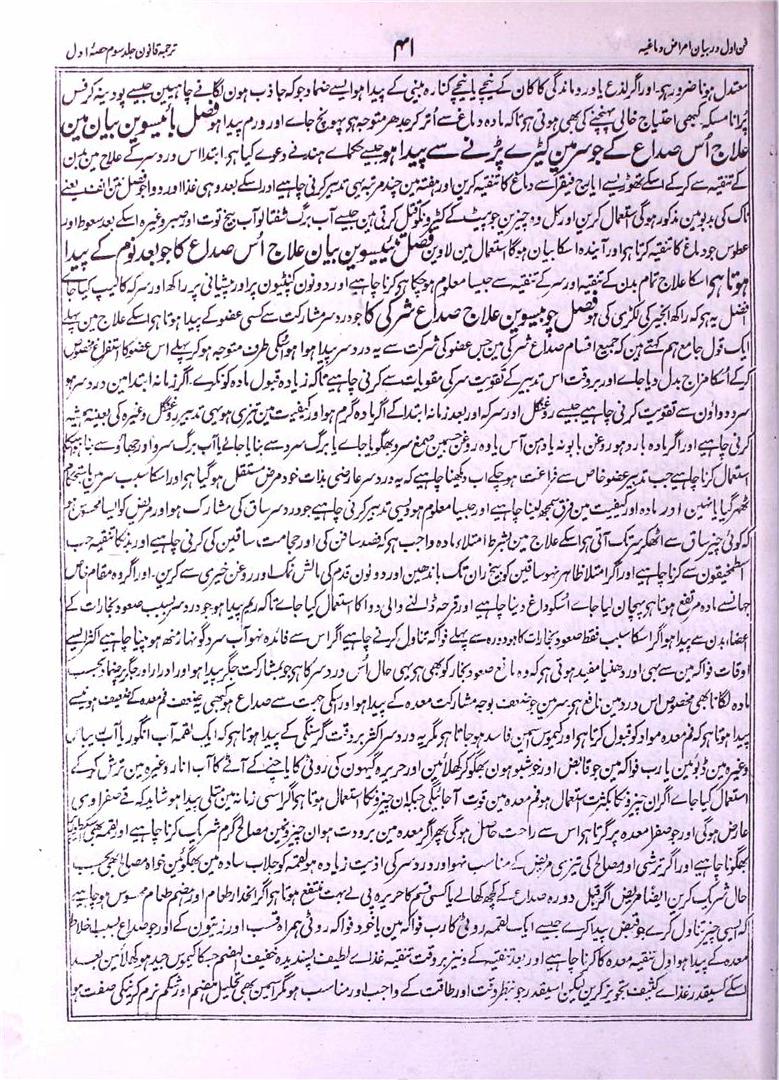 فن اول در بیان امراض دماغیہ ۴۱ ترجمہ قانون جلد سوم حصۂ اول
معتدل ہونا ضرور ہی اور اگر لذع یا دور وماندگی کا کان کے نیچے یا نیچے کنارہ بینی کے پیدا ہو ایسے ضماد جو کہ جاذب ہون لگانے چاہیین جیسے پودینہ کرفس
پرانا مسکہ کبھی احتیاج خالی پچھنے کی بھی ہوتی ہی تاکہ مادہ دماغ سے اتر کر جدھر متوجہ ہی پہونچ جاے اور ورم پیدا ہو فصل بائیسوین بیان مین
علاج اُس صداع کے جو سر مین کیڑے پڑنے سے پیدا ہو جیسے حکماے ہند نے دعوے کیا ہی ابتدا اس درد سر کے علاج مین بدن
کے تنقیہ سے کر کے اسکے تھوڑیسے ایارج فیقرا سے دماغ کا تنقیہ کرین اور ہفتہ مین چند مرتبہ یہی تدبیر کرنی چاہیے اور اسکے بعد وہی غذا اور دوا جو فصل نتن انف یعنے
ناک کی بدبو مین مذکور ہوگی استعمال کرین اور کل وہ چیزین جو پیٹ کے کیڑونکو قتل کرتی ہین جیسے آب برگ شفتالو آب بیخ توت اور صبر وغیرہ اسکے بعد سعوط اور
عطوس جو دماغ کا تنقیہ کرتا ہو اور آیندہ اسکا بیان ہوگا استعمال مین لاوین فصل تئیسوین بیان علاج اُس صداع کا جو بعد نوم کے پیدا
ہوتا ہی اسکا علاج تمام بدن کے تنقیہ اور سر کے تنقیہ سے جیسا معلوم ہو چکا ہی کرنا چاہیے اور دونون کنپٹیون پر اور پیشانی پر راکھ اور سرکہ کا لیپ کیا جاے
افضل یہ ہی کہ راکھ انجیر کی لکڑی کی ہو فصل چوبیسوین علاج صداع شرکی کا جو درد سر مشارکت سے کسی عضو کے پیدا ہوتا ہی اسکے علاج مین پہلے
ایک قول جامع ہم کہتے ہین کہ جمیع اقسام صداع شرکی مین جس عضو کی شرکت سے یہ درد سر پیدا ہوا ہو اسکی طرف متوجہ ہو کر پہلے اس عضو کا استفراغ مخصوص
کر کے اُسکا مزاج بدل دیا جاے اور بروقت اس تدبیر کے تقویت سر کی مقویات سے کرنی چاہیے تاکہ زیادہ قبول مادہ کو نکرے۔ اگر زمانہ ابتدا مین درد سر ہو
سرد دواؤن سے تقویت کرنی چاہیے جیسے روغنگل اور سرکہ اور بعد زمانہ ابتدا کے اگر مادہ گرم ہو اور کیفیت مین تیزی ہو یہی تدبیر روغنگل وغیرہ کی بعینہ ہمیشہ
کرنی چاہیے اور اگر مادہ بارد ہو روغن بابونہ یا دہن آس یا وہ روغن جسمین صمغ سرو بھگویا جاے یا برگ سرو سے بنایا جائے یا آب برگ سرو اور جھاؤ سے بنا ہو اسکا
استعمال کرنا چاہیے جب تدبیر عضو خاص سے فراغت ہو چکے اب دیکھنا چاہیے کہ یہ درد سر عارضی بذات خود مرض مستقل ہو گیا ہی اور اسکا سبب سر مین باستحکام
ٹھہر گیا یا نہین اور مادہ اور کیفیت مین فرق سمجھ لینا چاہیے اور جیسا معلوم ہو ویسی تدبیر کرنی چاہیے جو درد سر ساق کی مشارک ہو اور مریض کو ایسا محسوس ہو
کہ کوئی چیز ساق سے اٹھکر سر تک آتی ہی اسکے علاج مین بشرط امتلاء مادہ واجب ہی کہ فصد صافن کی اور حجامت ساقین کی کرنی چاہیے اور بدنکا تنقیہ حب
اسطمخیقون سے کرنا چاہیے اور اگر امتلا ظاہر نہو ساقین کو بیخ ران تک باندھین اور دونون قدم کی مالش نمک اور روغن خیری سے کرین۔ اور اگر وہ مقام خاص
جہانسے مادہ مرتفع ہوتا ہی پہچان لیا جاے اُسکو داغ دینا چاہیے اور قرحہ ڈالنے والی دوا کا استعمال کیا جاے تاکہ ریم پیدا ہو جو درد سر بسبب صعود بخارات کے
اعضاء بدن سے پیدا ہو اگر اسکا سبب فقط صعود بخارات کا ہو دورہ سے پہلے فواکہ تناول کرنے چاہیے اگر اس سے فائدہ نہو آب سرد گو نہار منھ ہو پینا چاہیے اکثر ایسے
اوقات فواکہ مین سے بہی اور دھنیا مفید ہوتی ہی کہ وہ مانع صعود بخار کو بھی ہی یہی حال اُس درد سر کا ہی جو بمشارکت جگر پیدا ہو اور ادرار اور جگر پر ضماد بحسب
مادہ لگانا بھی مخصوص اس درد مین نافع ہی سر مین جو ضعف بوجہ مشارکت معدہ کے پیدا ہو اور اسکی جہت سے صداع ہو کبھی یہ ضعف فم معدہ کے ضعیف ہونیسے
پیدا ہوتا ہی کہ فم معدہ مواد کو قبول کرتا ہی اور کیموس اسمین فاسد ہو جاتا ہی مگر یہ درد سر اکثر بروقت گرسنگی کے پیدا ہوتا ہی کہ ایک لقمہ آب انگور یا آب بہاس
وغیرہ مین ڈبو مین یا رب فواکہ مین جو قابض اور خوشبو ہون بھگو کر کھلائین اور حریرہ گیہون کی روٹی کا یا چنے کے آٹے کا آب انار وغیرہ مین ترش کر کے
استعمال کیا جاے اگر ان چیزونکا بکثرت استعمال ہو فم معدہ مین قوت آجائیگی جبکہ ان چیزونکا استعمال ہوتا ہی اگر اسی زمانہ مین متلی پیدا ہو شاید کہ قے صفراوی
عارض ہوگی اور جو صفرا معدہ پر گرتا ہی اس سے راحت حاصل ہوگی پھر اگر معدہ مین برودت ہو ان چیزونمین مصالح گرم شریک کرنا چاہیے اور لقمہ بھی
بھگونا چاہیے اور اگر ترشی اور مصالح کی تیزی مریض کے مناسب نہو اور درد سر کی اذیت زیادہ ہو لقمہ کو جلاب سادہ مین بھگوئین خواہ مصالح بھی بحسب
حال شریک کرین ایضا مریض اگر قبل دورہ صداع کے کچھ کھا لے یا کسی قسم کا حریرہ پی لے بہت منتفع ہوتا ہی اگر انحدار طعام اور ہضم طعام محسوس ہو چاہیے
کہ ایسی چیز تناول کرے جو قبض پیدا کرے جیسے ایک لقمہ روٹی کا رب فواکہ مین یا خود فواکہ روٹی ہمراہ قسب اور زیتون کے اور جو صداع بسبب اخلاط
معدہ کے پیدا ہو اول تنقیہ معدہ کا کرنا چاہیے اور بعد تنقیہ کے ونیز بروقت تنقیہ غذاے لطیف پسندیدہ خفیف الہضم جسکا کیموس جید ہو کھلائین بعد
اسکے کسیقدر غذاے کثیف تجویز کرین لیکن اسیقدر جو بنظر وقت اور طاقت کے واجب اور مناسب ہو مگر اسمین بھی تحلیل منہضم اور شکم نرم کرنیکی صفت ہو